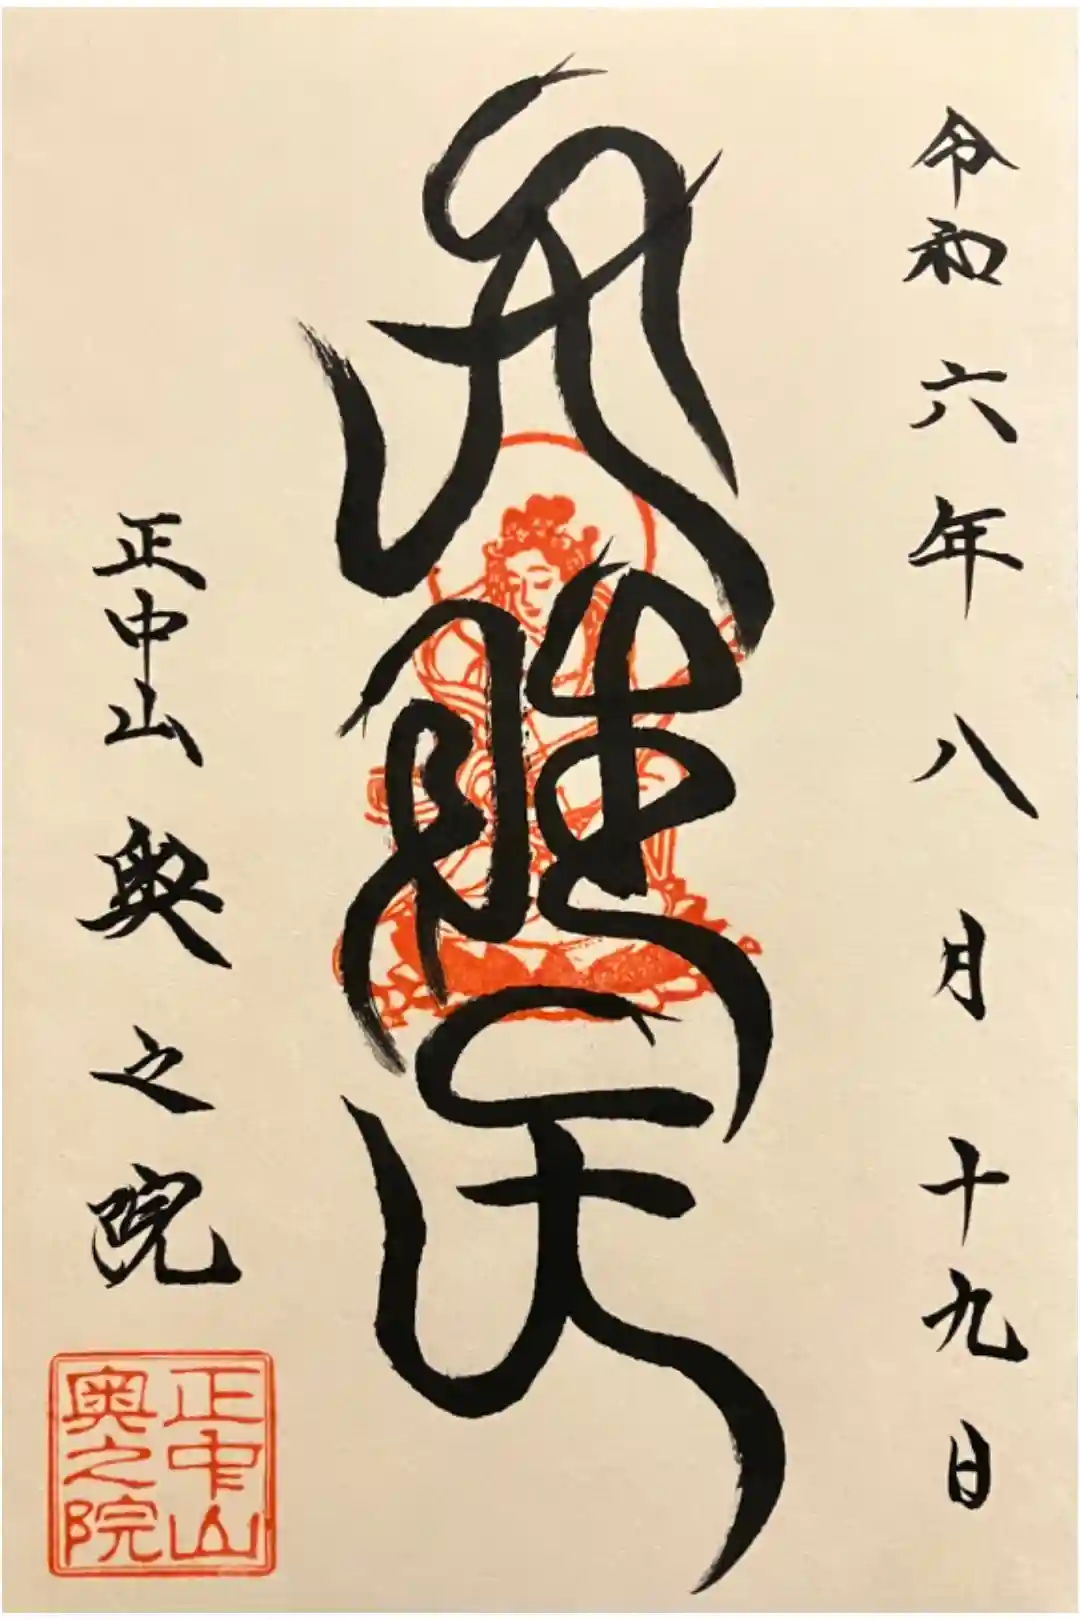 令和六年八月十九日
弁財天
正中山奥之院
正中山
奥之院